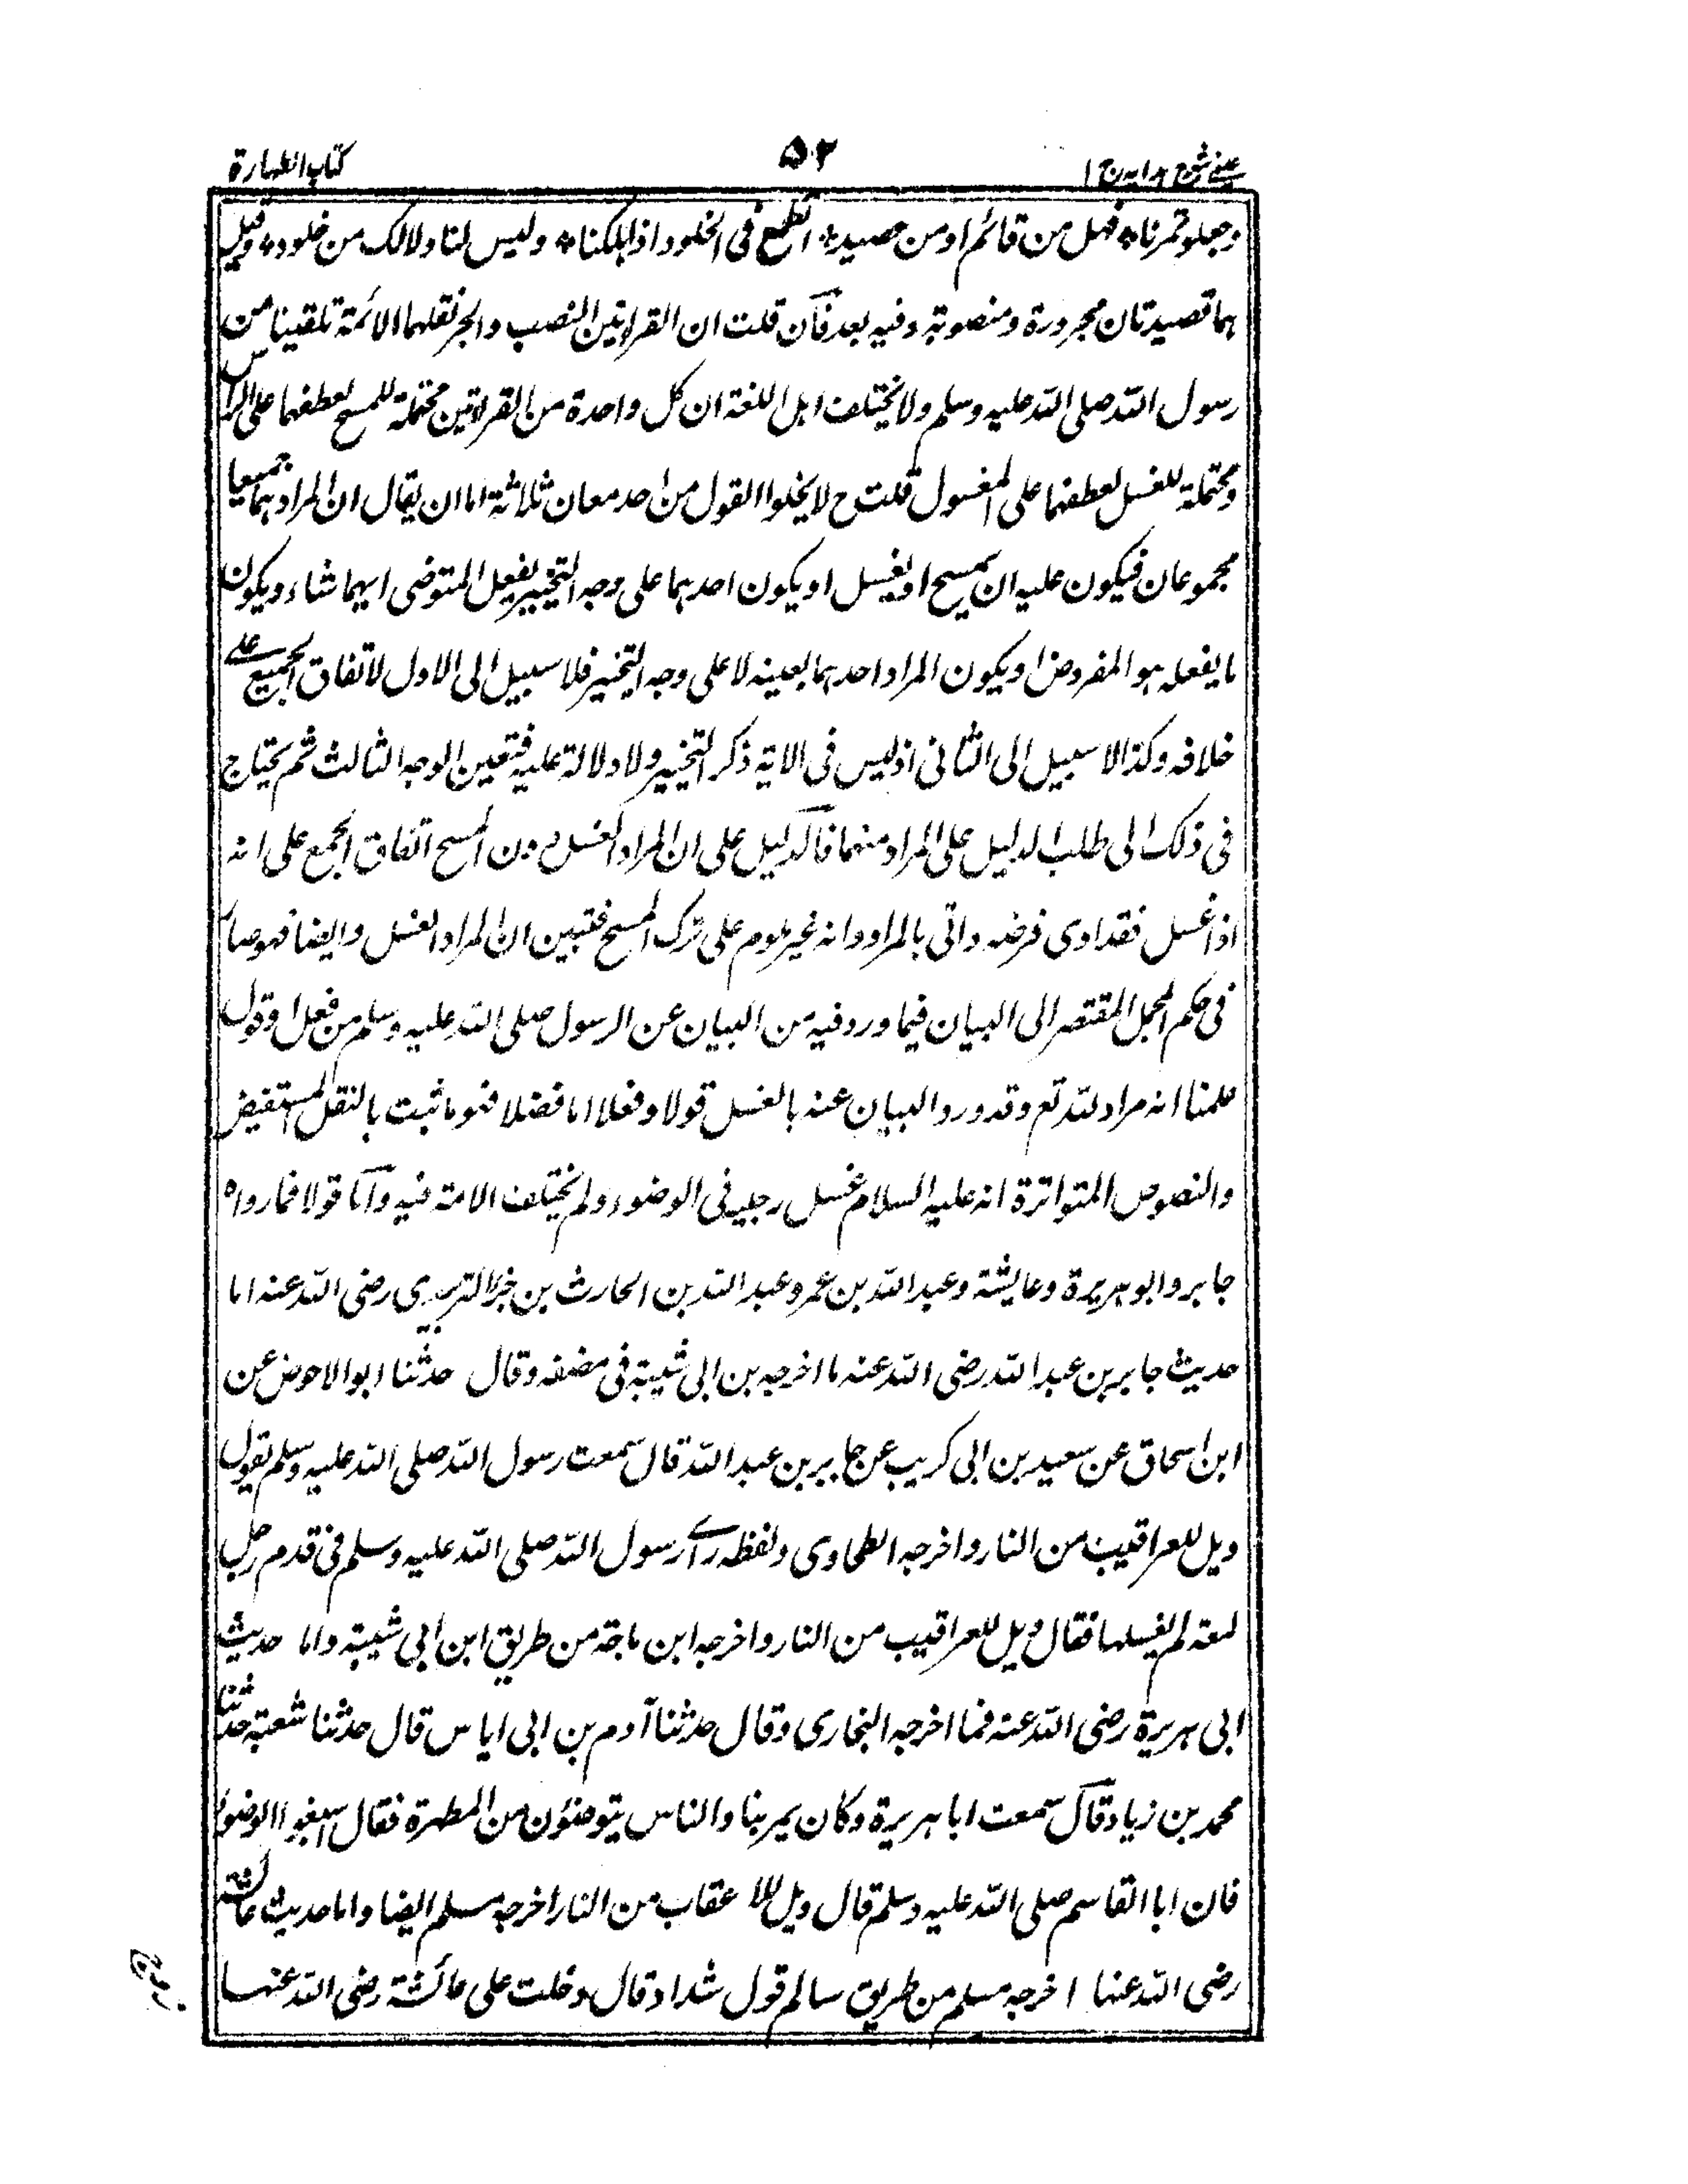 عینی شرح ہدایہ ج ۱
۵۲
کتاب الطہارة
وجعلو تمرنا* فہل من قائم او من حصید* اتطمع فی الخلود اذا ہلکنا* ولیس لنا ولا لک من خلود* وقیل
ہما قصیدتان مجرورة ومنصوبة وفیہ بعد فآن قلت ان القراءتین النصب والجر نقلہما الائمة تلقینا من
رسول اللہ صلی اللہ علیہ وسلم ولا یختلف اہل اللغة ان کل واحدة من القراءتین محتملة للمسح لعطفہما علی الراس
ومحتملة للغسل لعطفہما علی المغسول قلت ح لا یخلوا القول من احد معان ثلاثة اما ان یقال ان المراد ہما جمیعا
مجموعان فیکون علیہ ان یمسح او یغسل او یکون احدہما علی وجہ التخییر یفعل المتوضی ایہما شاء ویکون
ما یفعلہ ہو المفروض او یکون المراد احدہما بعینہ لا علی وجہ التخییر فلا سبیل الی الاول لاتفاق الجمیع علی
خلافہ وکذا لا سبیل الی الثانی اذ لیس فی الایة ذکر التخییر ولا دلالة علیہ فتعین الوجہ الثالث ثم یحتاج
فی ذلک الی طلب الدلیل علی المراد منہما فآلدلیل علی ان المراد الغسل دون المسح اتفاق الجمع علی انہ
اذا غسل فقد ادی فرضہ واتی بالمراد وانہ غیر ملوم علی ترک المسح فتبین ان المراد الغسل وایضا فہو صار
فی حکم المجمل المفتقر الی البیان فیما ورد فیہ من البیان عن الرسول صلی اللہ علیہ وسلم من فعل او قول
علمنا انہ مراد للہ تع وقد ورد البیان عنہ بالغسل قولا وفعلا اما فضلا فہو ما ثبت بالنقل المستفیض
والنصوص المتواترة انہ علیہ السلام غسل رجلیہ فی الوضوء ولم یختلف الامة فیہ وآما قولا فما رواہ
جابر وابو ہریرة وعایشة وعبد اللہ بن عمر وعبد اللہ بن الحارث بن جزء الزبیدی رضی اللہ عنہ اما
حدیث جابر بن عبد اللہ رضی اللہ عنہ ما اخرجہ بن ابی شیبة فی مصنفہ وقال حدثنا ابو الاحوض عن
ابن اسحاق عن سعید بن ابی کریب عن جابر بن عبد اللہ قال سمعت رسول اللہ صلی اللہ علیہ وسلم یقول
ویل للعراقیب من النار واخرجہ الطحاوی ولفظہ رای رسول اللہ صلی اللہ علیہ وسلم فی قدم رجل
لمعة لم یغسلہا فقال ویل للعراقیب من النار واخرجہ ابن ماجة من طریق ابن ابی شیبة واما حدیث
ابی ہریرة رضی اللہ عنہ فما اخرجہ البخاری وقال حدثنا آدم بن ابی ایاس قال حدثنا شعبة حدثنا
محمد بن زیاد قآل سمعت ابا ہریرة وکان یمر بنا والناس یتوضئون من المطہرة فقال اسبغوا الوضوء
فان ابا القاسم صلی اللہ علیہ وسلم قال ویل للا عقاب من النار اخرجہ مسلم ایضا واما حدیث عائشة
رضی اللہ عنہا اخرجہ مسلم من طریق سالم قول شداد قال دخلت علی عائشة رضی اللہ عنہا